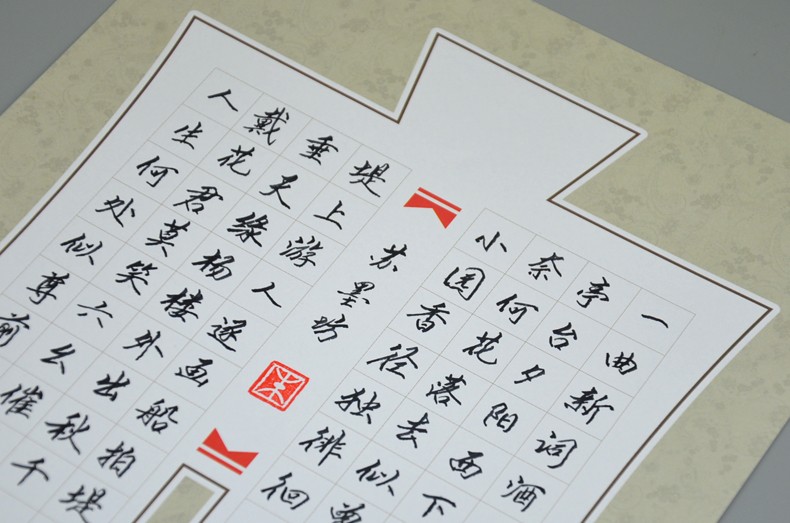 一曲新词酒
亭台夕阳西下
奈何花落去似
小园香径独徘徊
苏墨坊
堤上游人逐画船拍堤
垂天绿杨楼外出秋千
戴花君莫笑六幺催
人生何处似尊前